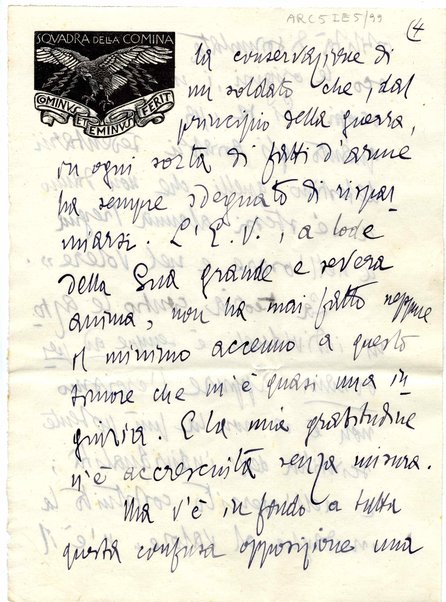 ARC5IE5/99
4
SQVADRA DELLA COMINA
COMINVS ET EMINVS FERIT
la conservazione di
un soldato che, dal
principio della guerra,
in ogni sorta di fatti d'arme
ha sempre sdegnato di rispar
miarsi. L'E.V., a lode
della Sua grande e severa
anima, non ha mai fatto neppure
il minimo accenno a questo
timore che m'è quasi una in
giuria. E la mia gratitudine
n'è accresciuta senza misura.
Ma v'è in fondo a tutta
questa confusa opposizione una